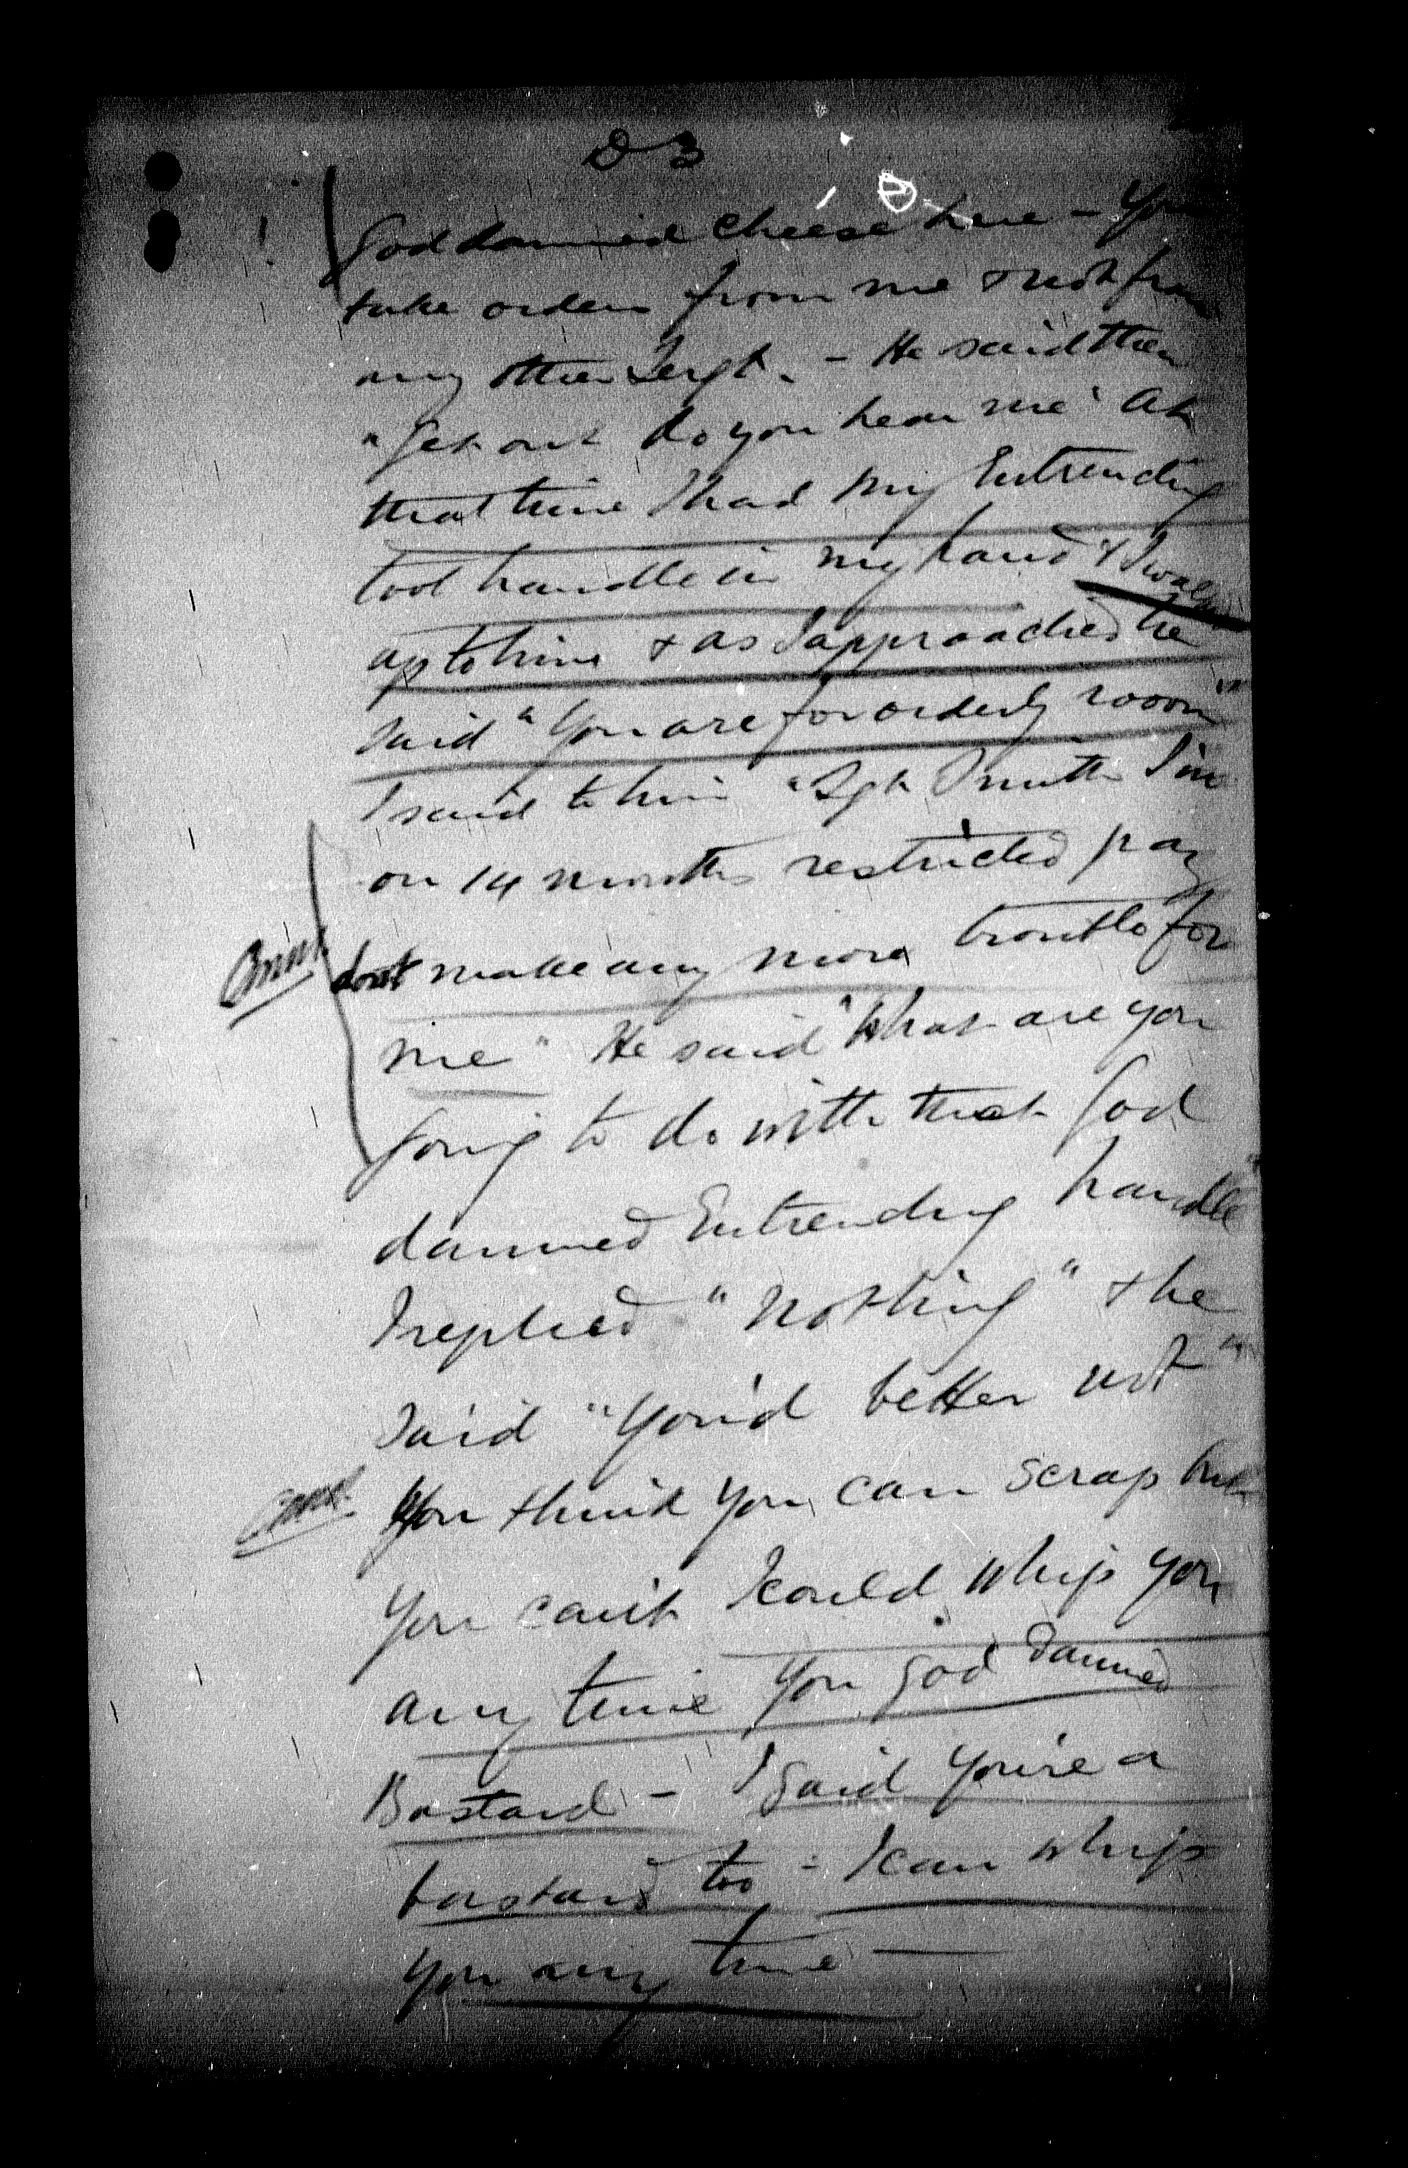 D 3
God damned cheese here - You
take orders from me & not from
any other Sergt. - He said then
"Get out do you hear me" At
that time I had my Entrenching
tool handle in my hand & I walked
up to him & as I approached he
said "You are for orderly room"
I said to him "Sgt Smith I'm
on 14 months restricted pay
dont make any more trouble for
me" He said "What are you
going to do with that God
damned Entrending handle"
I replied "Nothing" & he
said "You'd better not"
You think you can scrap but
you can't I could whip you
any time you God damned
Bastard - I said you're a
bastard too - I can whip
you any time —